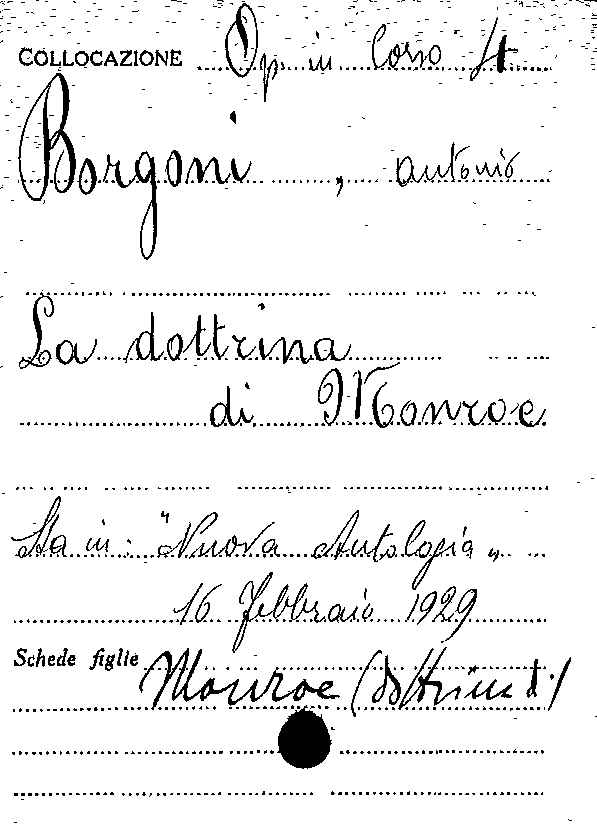 COLLOCAZIONE Op in Corso 4
Borgoni, Antonio
La dottrina
di Monroe
Sta in: "Nuova Antologia"
16 febbraio 1929
Schede figlie Monroe (dottrina di)